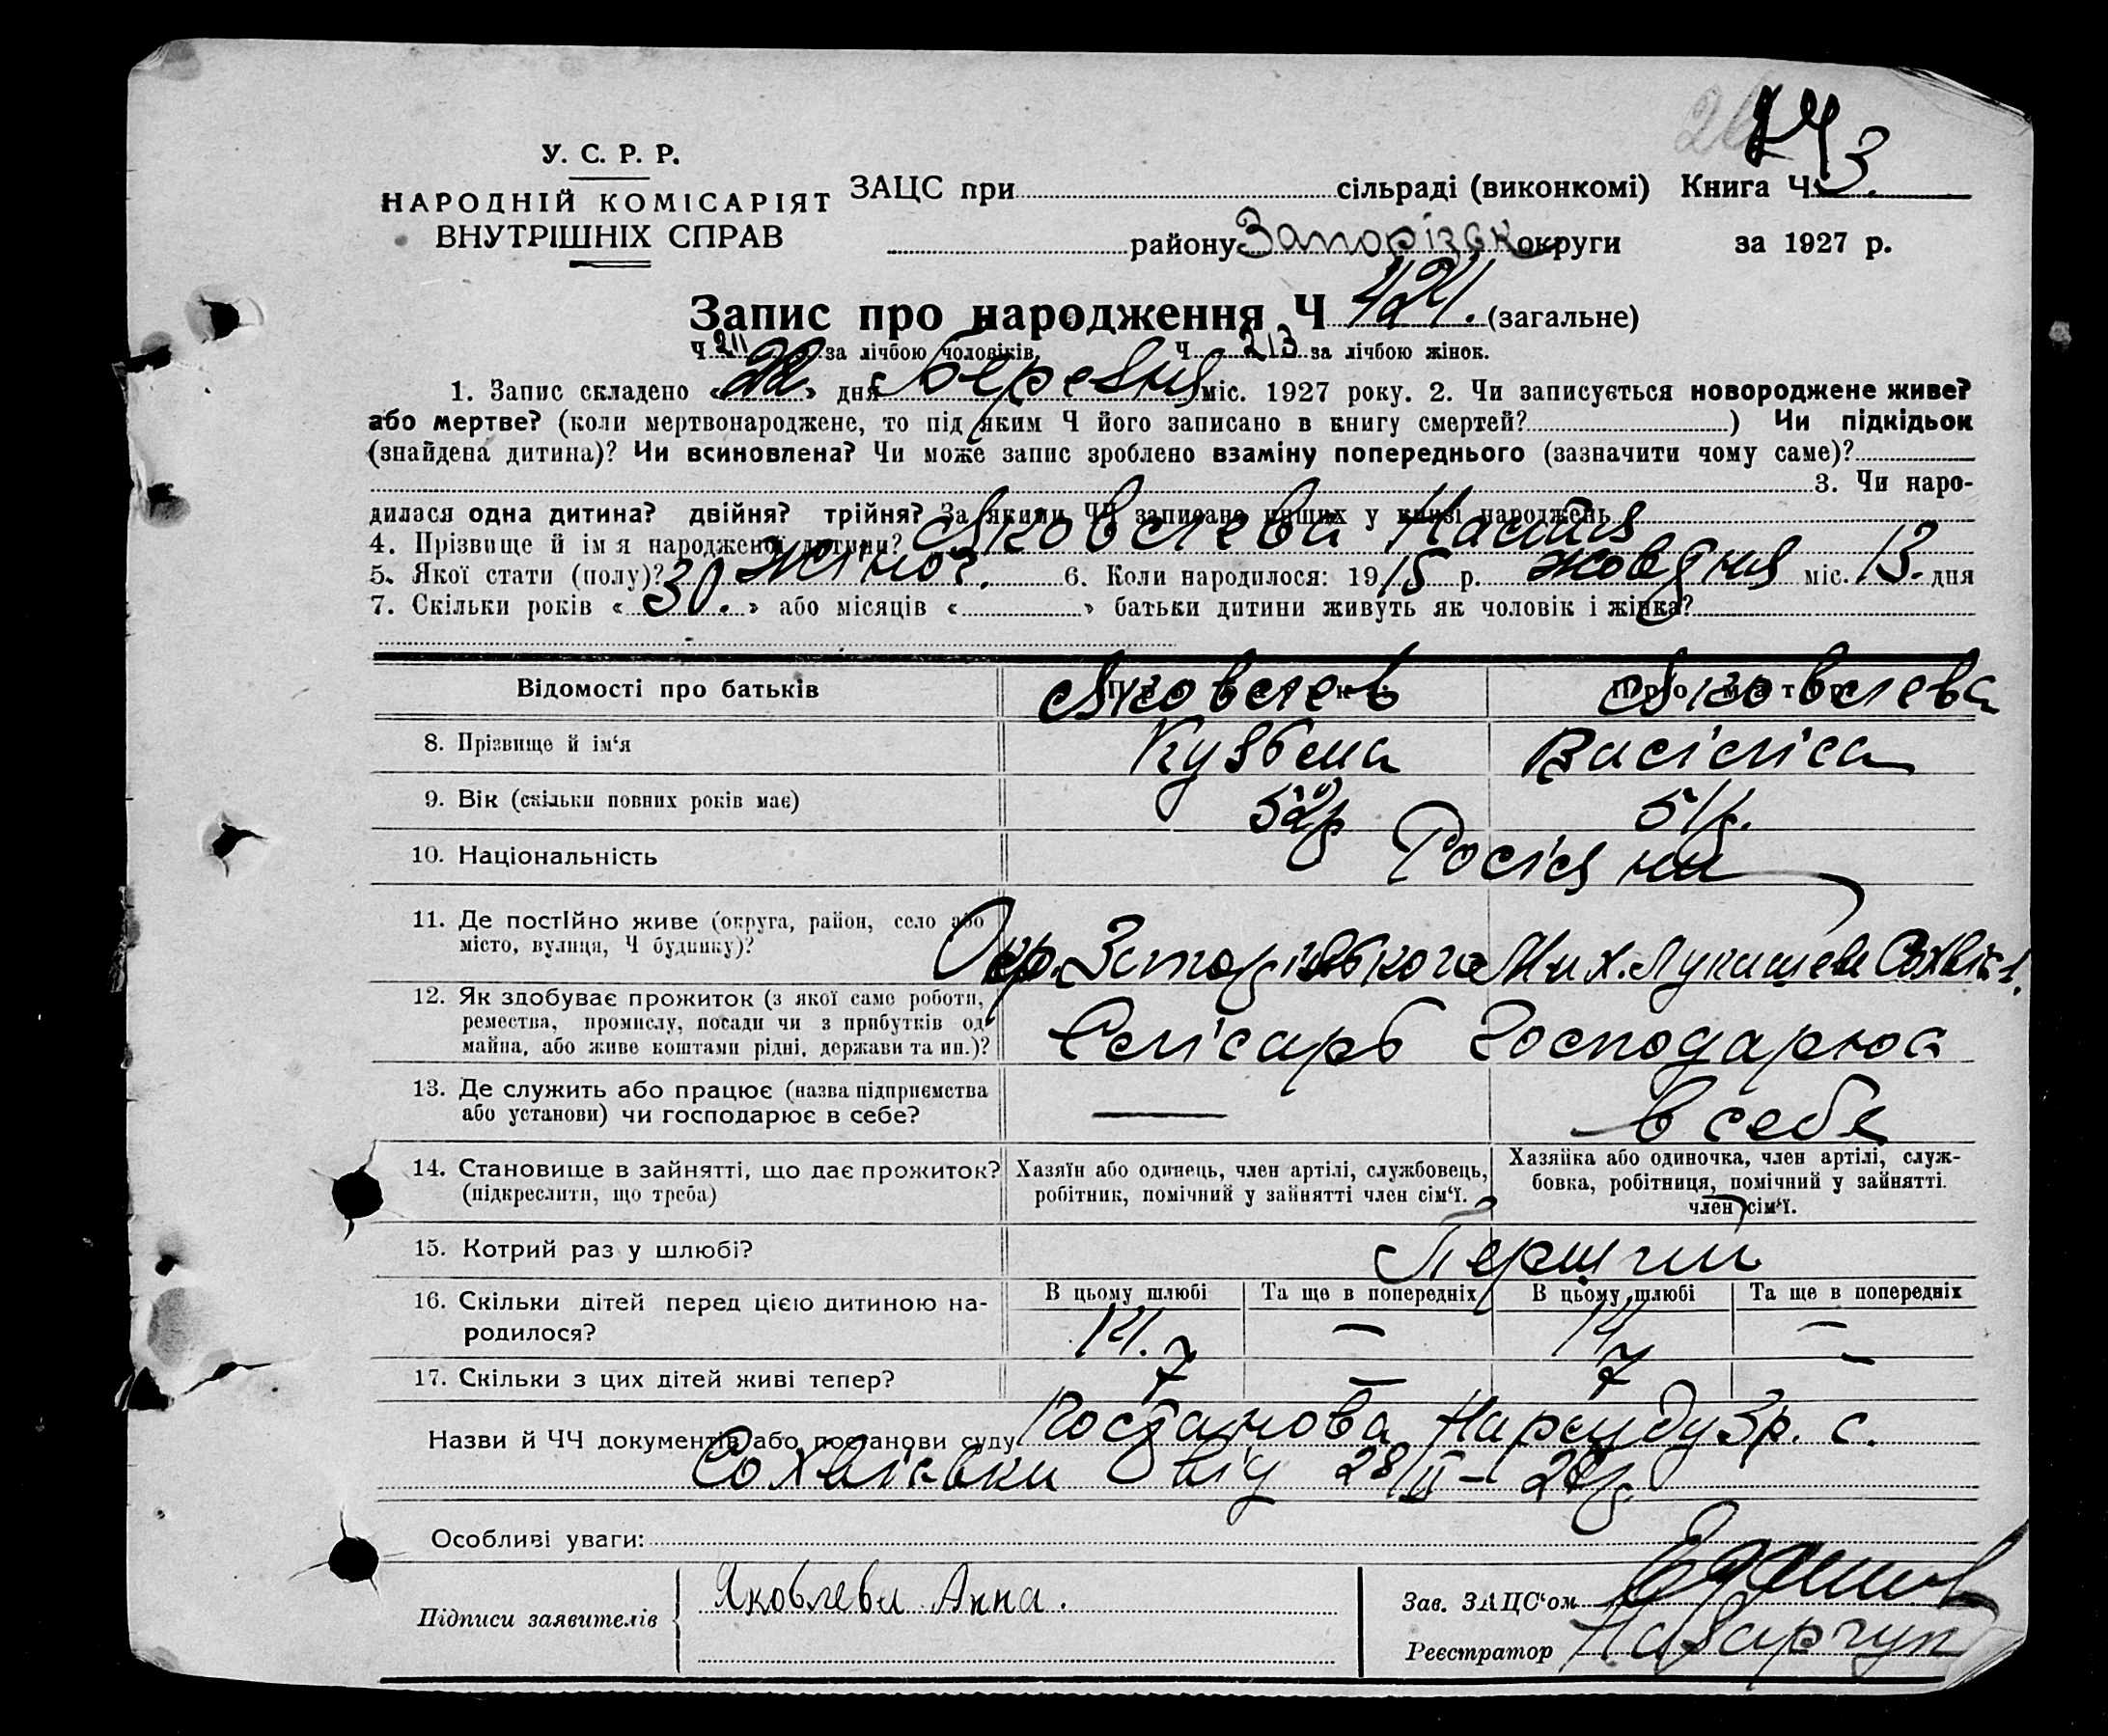 У. С. Р. Р.
НАРОДНІЙ КОМІСАРІЯТ
ВНУТРІШНІХ СПРАВ
ЗАЦС при сільраді (виконкомі) Книга Ч 3.
району Запорізьк округи за 1927 р.
Запис про народження Ч 424. (загальне)
Ч 211 за лічбою чоловіків, Ч 213 за лічбою жінок.
1. Запис складено «22» дня Березня міс. 1927 року. 2. Чи записується новороджене живе?
або мертве? (коли мертвонароджене, то під яким Ч його записано в книгу смертей? ) Чи підкідьок
(знайдена дитина)? Чи всиновлена? Чи може запис зроблено взаміну попереднього (зазначити чому саме)?
3. Чи наро-
дилася одна дитина? двійня? трійня? За якими ЧЧ записано инших у книзі народжень
4. Прізвище й ім'я народженої дитини? Яковлева
5. Якої стати (полу)? Жіноч. 6. Коли народилося: 1915 р. жовдня міс. 13. дня
7. Скільки років «30.» або місяців « » батьки дитини живуть як чоловік і жінка?
Відомості про батьків Яковлев Яковлева
8. Прізвище й ім‘я Кузьма Васіліса
9. Вік (скільки повних років має) 52р 51р.
10. Національність Росіяни
11. Де постійно живе (округа, район, село або
місто, вулиця, Ч будинку)? Окр. Запорізького Мих. Лукашеве
12. Як здобуває прожиток (з якої саме роботи,
ремества, промислу, посади чи з прибутків од
майна, або живе коштами рідні, держави та ин.)? Слісарь Господарюа
13. Де служить або працює (назва підприємства
або установи) чи господарює в себе? — в себе
14. Становище в зайнятті, що дає прожиток?
(підкреслити, що треба)
Хазяїн або одинець, член артілі, службовець,
робітник, помічний у зайнятті член сім‘ї.
Хазяйка або одиночка, член артілі, служ-
бовка, робітниця, помічний у зайнятті.
член сім‘ї.
15. Котрий раз у шлюбі? Перший
В цьому шлюбі Та ще в попередніх В цьому шлюбі Та ще в попередніх
16. Скільки дітей перед цією дитиною на-
родилося? 14. — 14 —
17. Скільки з цих дітей живі тепер? 7 — 7 —
Назви й ЧЧ документів або постанови суду Постанова Нарсуду 3 р. с.
Сохвіевки від 28/II-
Особливі уваги:
Підписи заявителів Яковлева Анна.
Зав. ЗАЦС‘ом
Реєстратор Назарчук